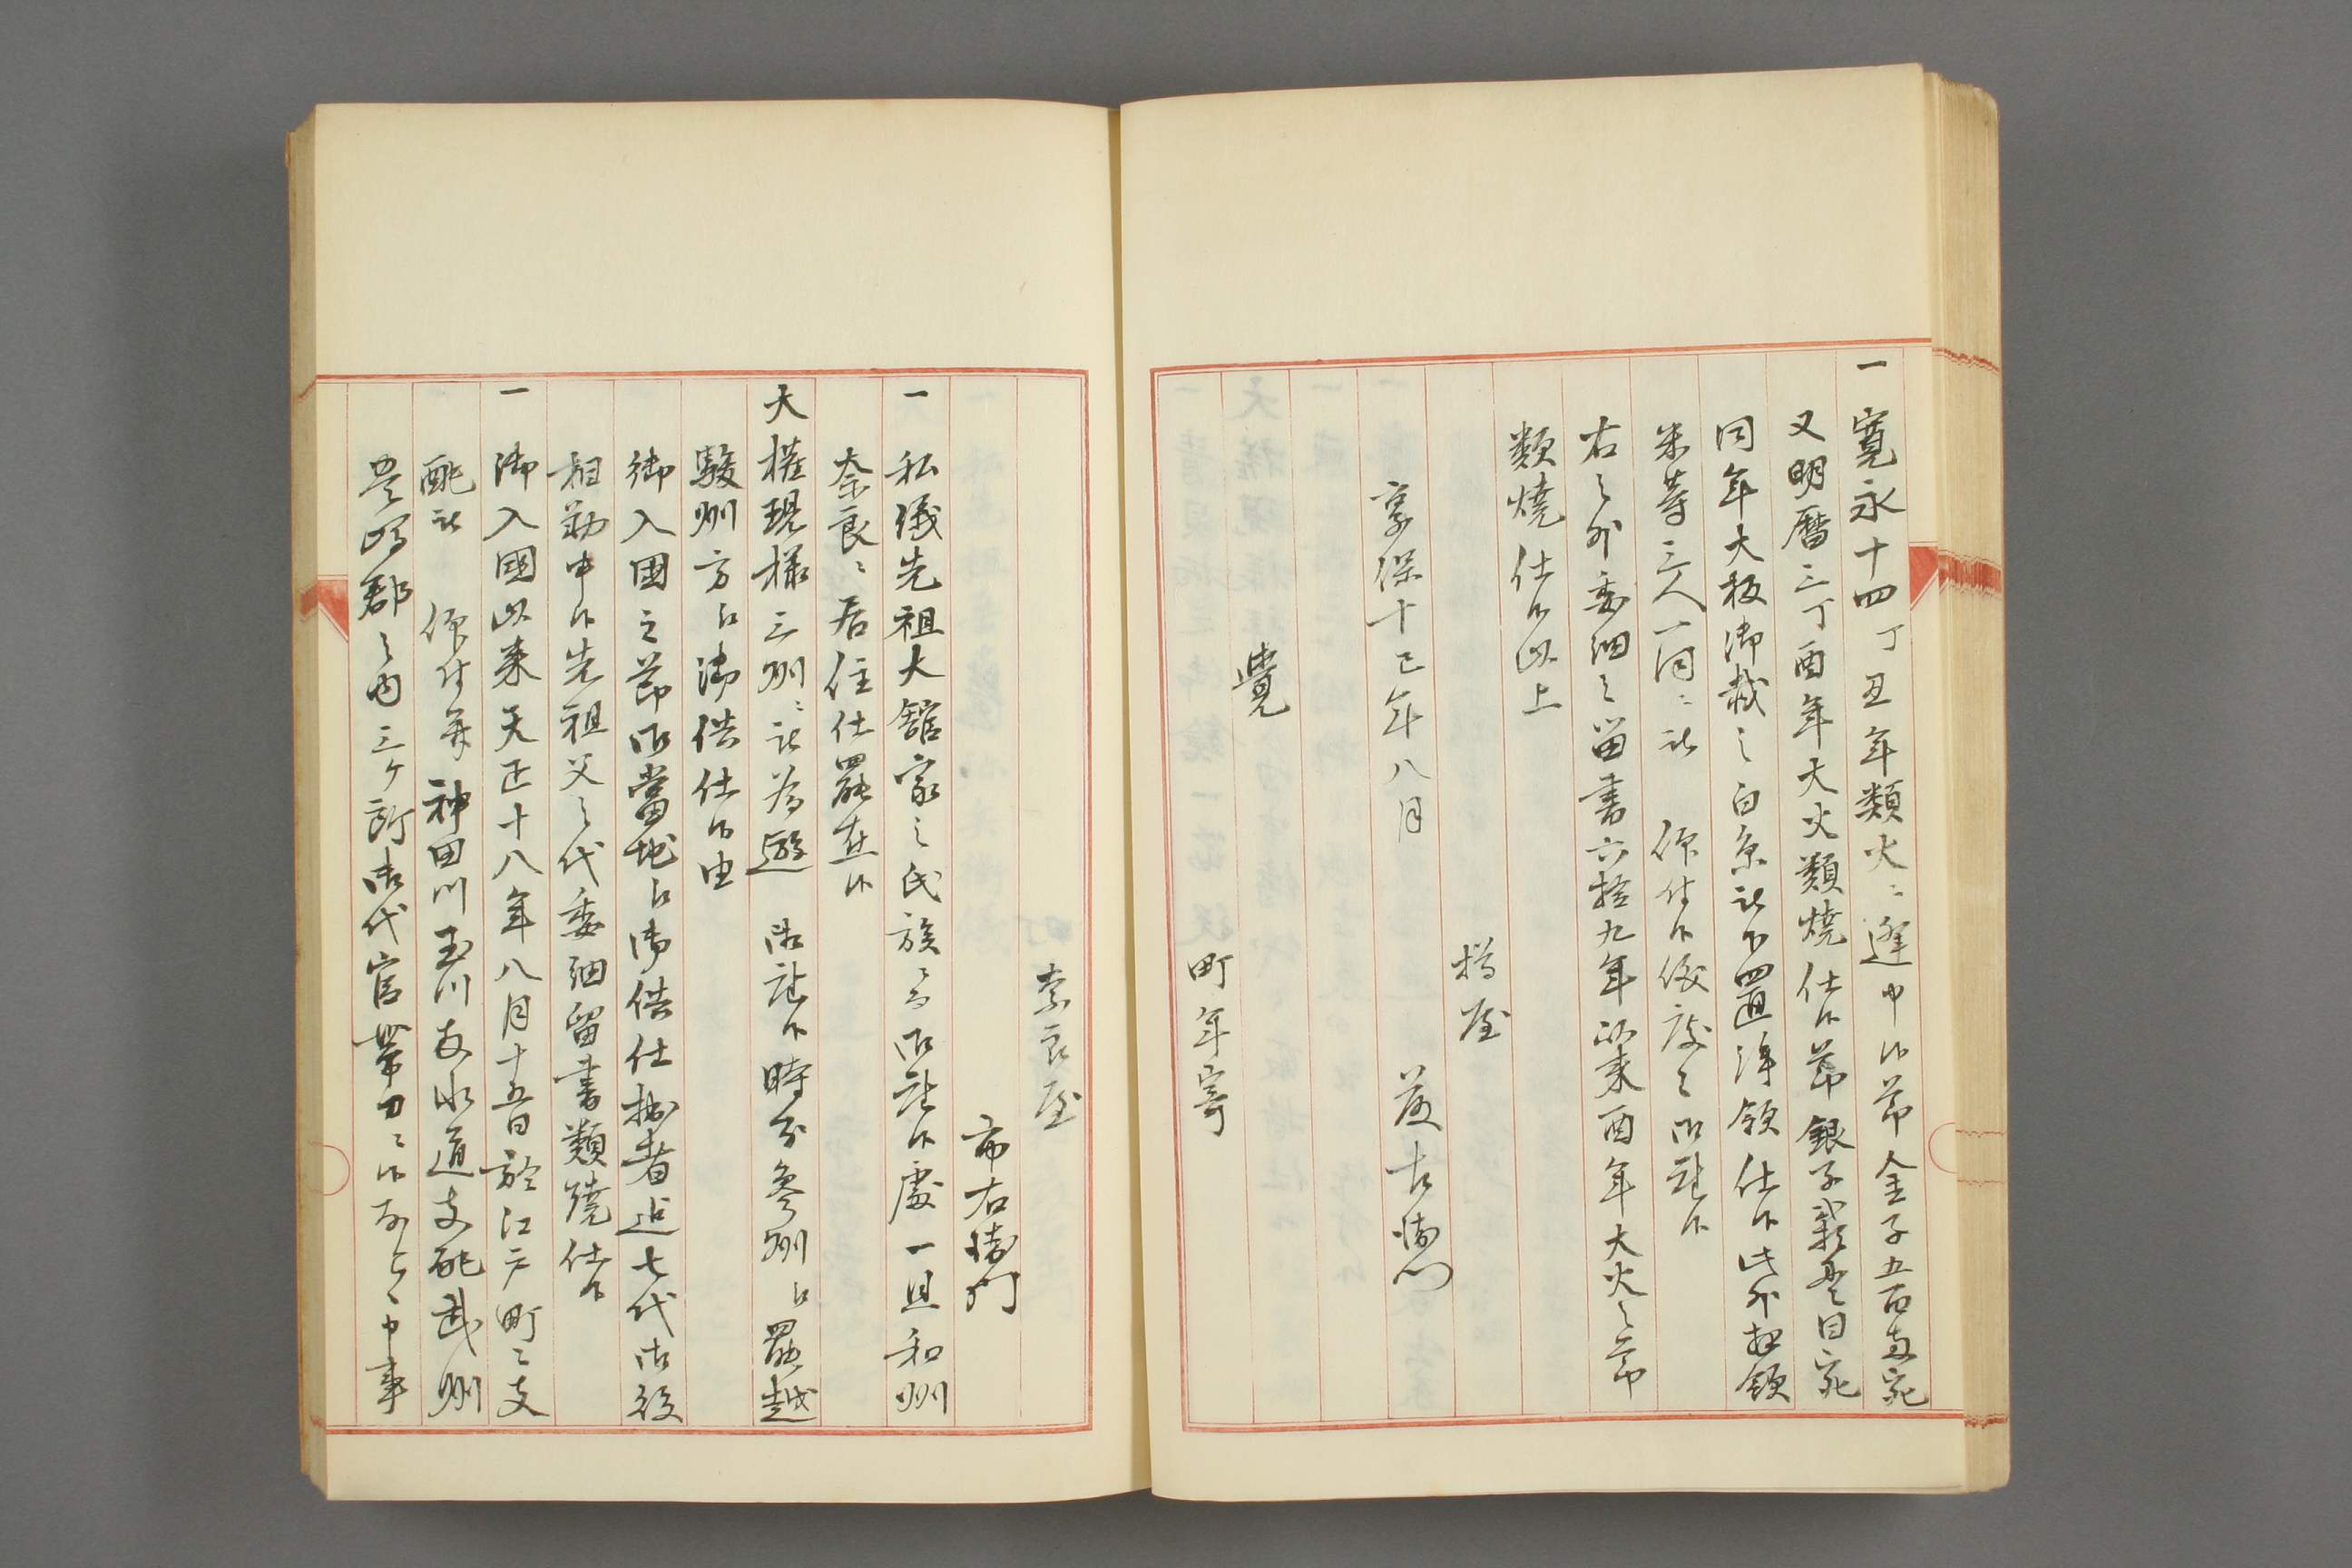 一寛永十四丁丑年類火ニ逢申候節金子五百両宛
又明暦三丁酉年大火類焼仕候節銀子 貫目宛
同年大坂御蔵之白糸被下置頂領仕候此外拝領
米等三人一同ニ被 仰付候儀度々御座候
右之外委細之留書六拾九年以来酉年大火之節
類焼仕候以上
樽屋
享保十巳年八月 藤右衛門
覚
町年寄
奈良屋
市右衛門
一私儀先祖大舘家之氏族ニ而御座候処一旦和州
奈良ニ居住仕罷在候
大権現様三州ニ被為遊 御座候時分参州江罷越
駿州方江御供仕候由
御入国之節御当地江御供仕拙者迄七代御役
相勤申候先祖父之代委細留書類焼仕候
一御入国以来天正十八年八月十五日於江戸町之支
配被 仰付并神田川玉川両水道支配武州
豊嶋郡之内三ケ所御代官帯刀ニ候 申事